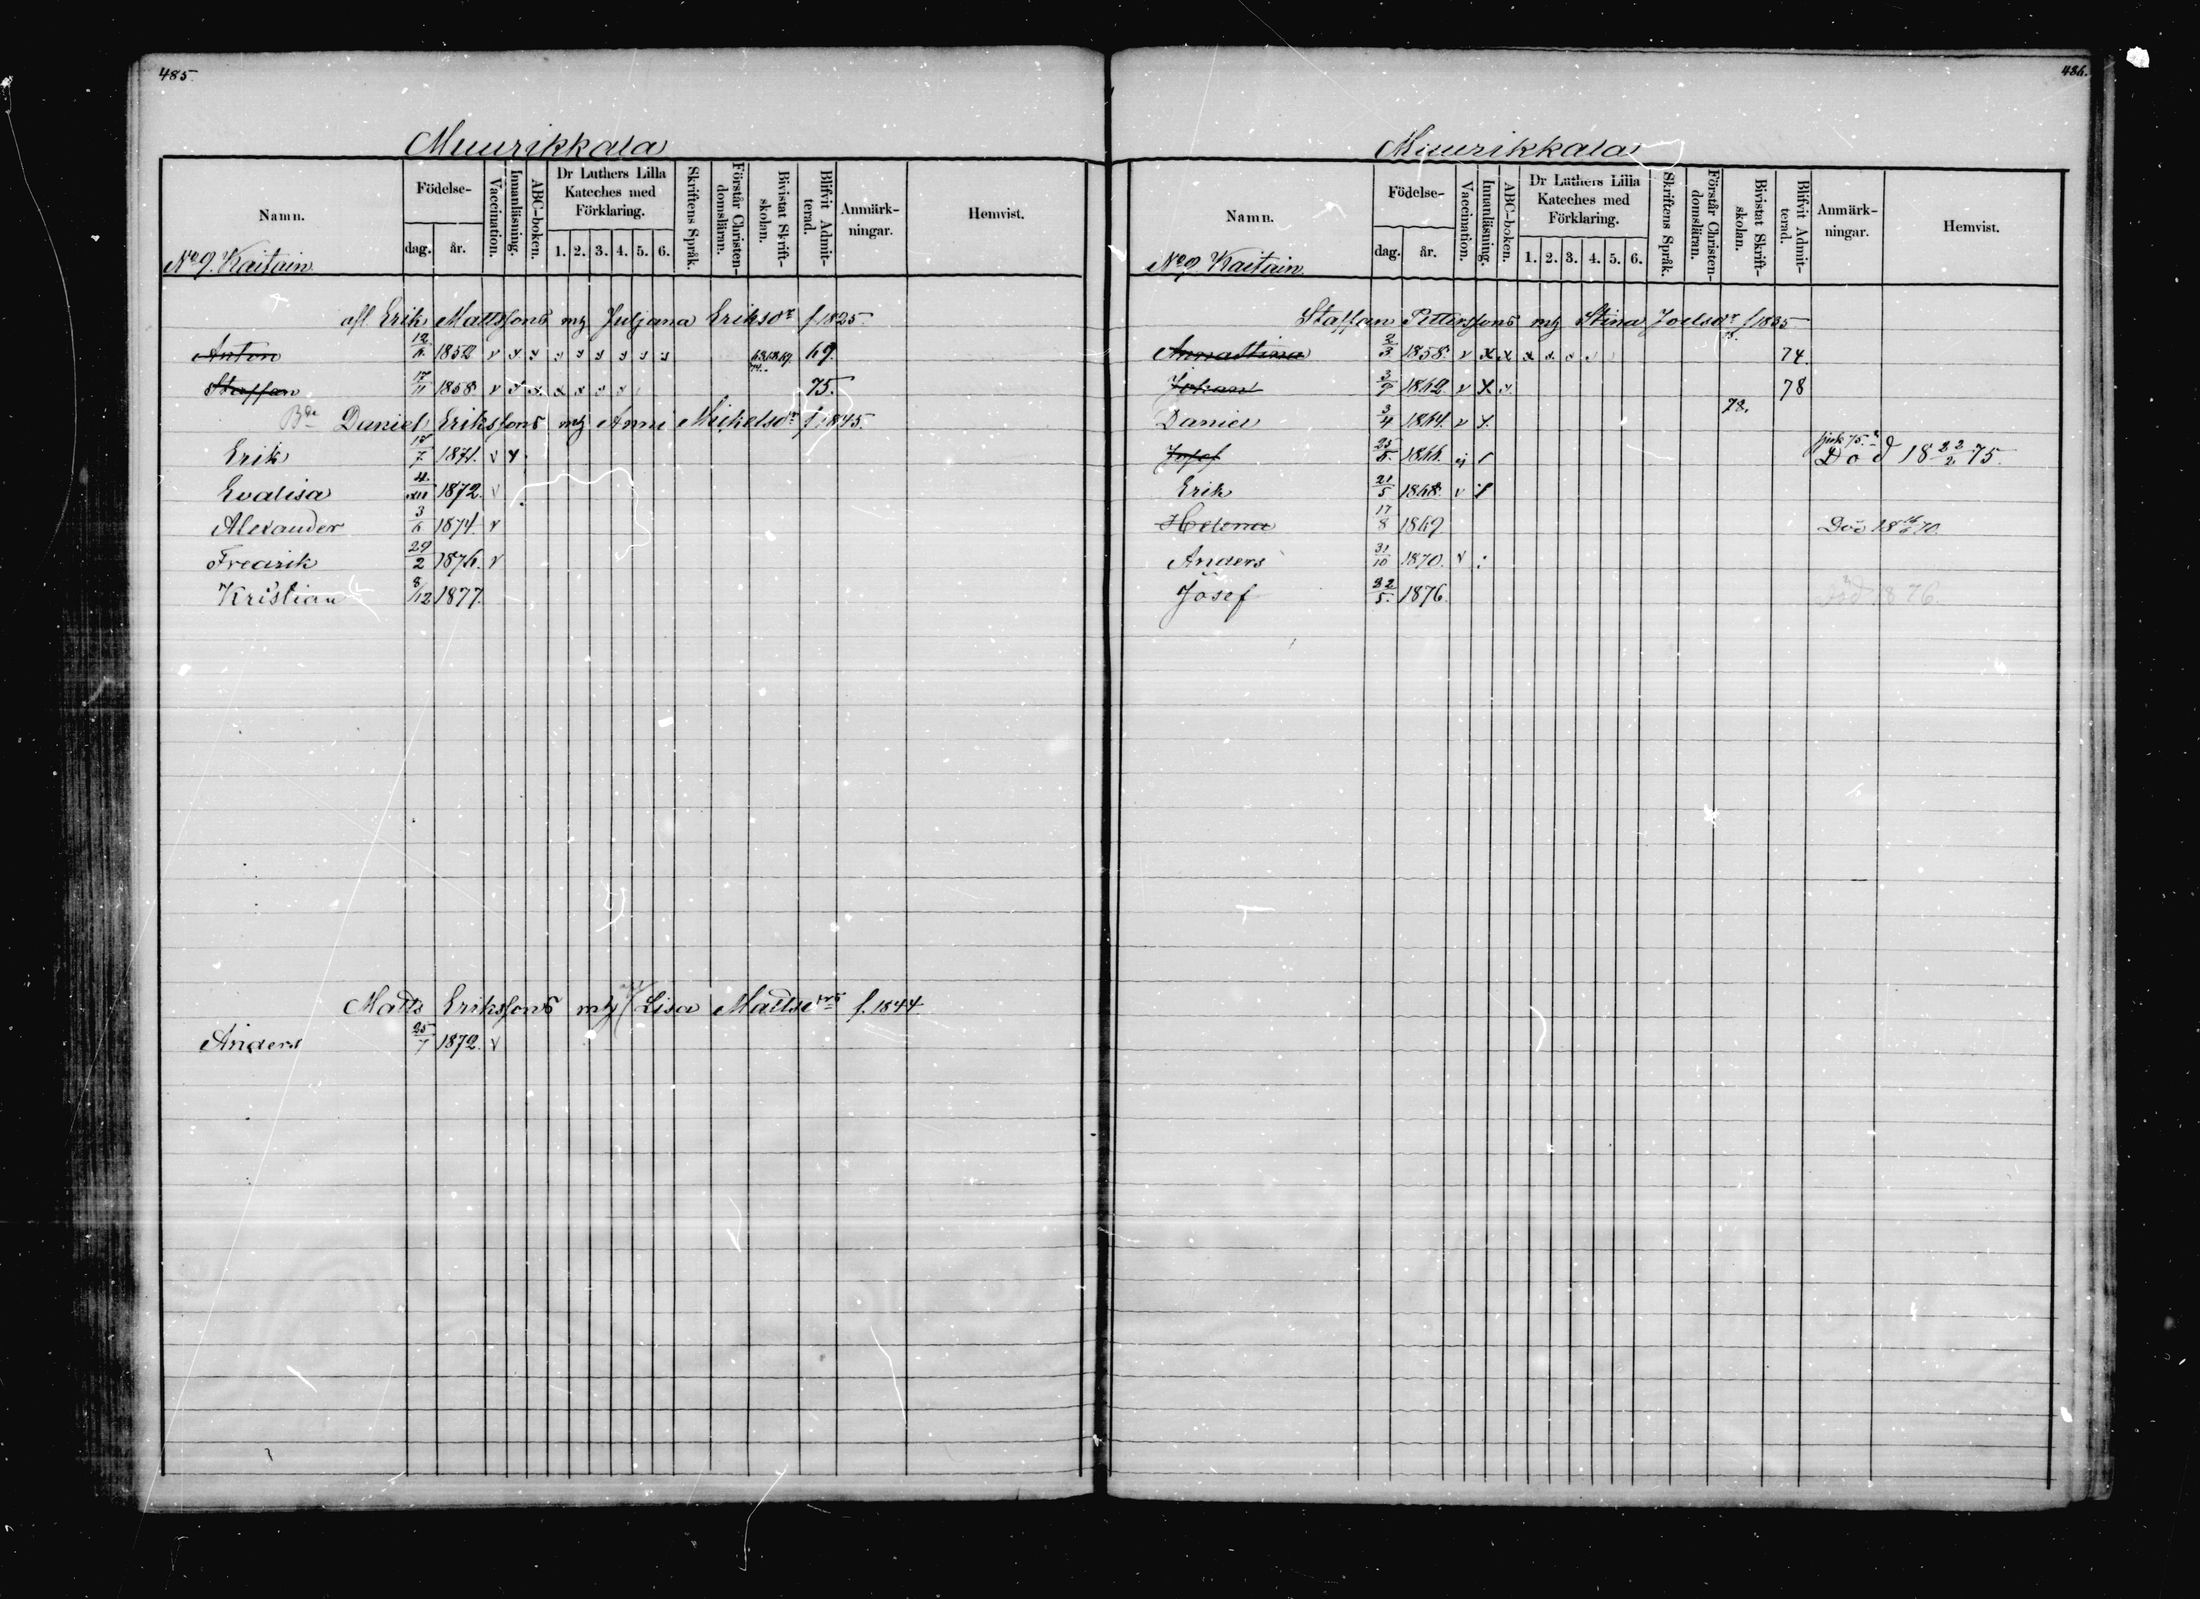 485.
Muurikkala
Namn.
Födelse-
dag.
år.
Vaccination.
Innanläsning.
ABC-boken.
Dr Luthers Lilla
Kateches med
Förklaring.
1. 2. 3. 4. 5. 6.
Skriftens Språk.
Förstår Christen-
domsläran.
Bivistat Skrift-
skolan.
Blifvit Admit-
terad.
Anmärk-
ningar.
Hemvist.
No 9. Kaitain
afl Erik Mattssons mh Juljana Eriksdr f 1825.
Anton 1852 v 69.
Staffan 17/11 1858 v 75.
Daniel Erikssons mh Anni Mickelsdr f 1845.
Erik 17/7 1871. v
Evalisa 1872. v
Alexander 3/6 1874. v
Fredrik 29/2 1876. v
Kristian 8/12 1877.
Matts Erikssons mh Lisa f. 1844
Anders 25/7 1872. v
486.
Muurikkala
Namn.
Födelse-
dag.
år.
Vaccination.
Innanläsning.
ABC-boken.
Dr Luthers Lilla
Kateches med
Förklaring.
1. 2. 3. 4. 5. 6.
Skriftens Språk.
Förstår Christen-
domsläran.
Bivistat Skrift-
skolan.
Blifvit Admit-
terad.
Anmärk-
ningar.
Hemvist.
No 9 Kaitain
Staffan Petterssons mh Stina Joelsdr f 1835
Annastina 2/3 1858. v x x 74.
Johan 3/9 1862. v x 78
78.
Daniel 3/4 1864. v
Josef 1866. ej Död 18 22/2 75.
Erik 21/5 1868. v
Helena 17/8 1869 Död
Anders 31/10 1870. v
Josef 22/5. 1876. Död 1876.